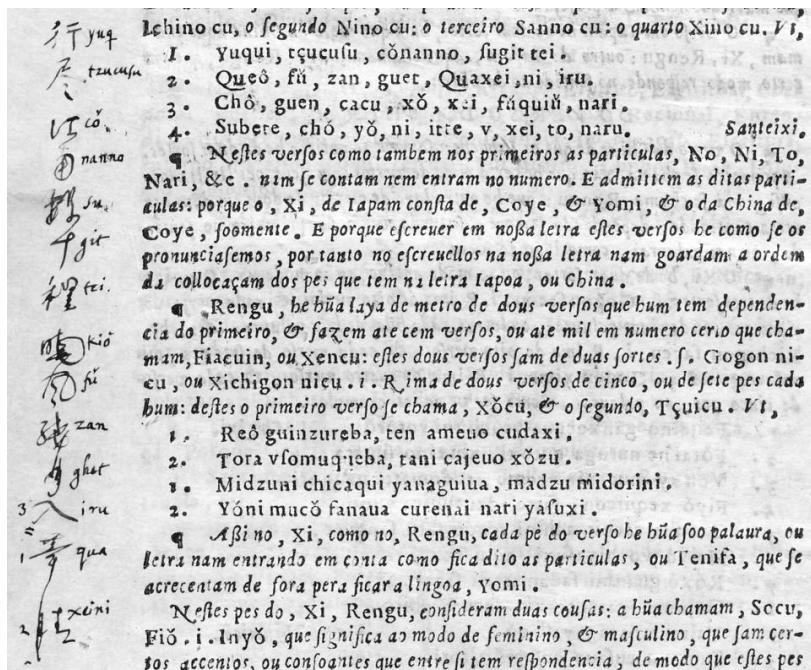 行 yuq
尽 tzucusu
江 cŏ
南 nanno
数 su
千 git
程 tei
暁 kiŏ
風 fũ
残 zan
月 ghet
3 入 iru
1 華 qua
2 xeini
Ichino cu, o ſegundo Nino cu: o terceiro Sanno cu: o quarto Xino cu. Vt,
1. Yuqui, tçucuſu, cŏnanno, ſugit tei.
2. Queô, fũ, zan, guet, Quaxei, ni, iru.
3. Chô, guen, cacu, xŏ, xei, fũquiũ, nari.
4. Subete, chô, yŏ, ni, itte, v, xei, to, naru. Santeixi.
¶ Neſtes verſos como tambem nos primeiros as particulas, No, Ni, To,
Nari, &c. nem ſe contam nem entram no numero. E admittem as ditas parti-
culas: porque o, Xi, de Iapam conſta de, Coye, & Yomi, & o da China de,
Coye, ſoomente. E porque eſcreuer em noſſa letra eſtes verſos he como ſe os
pronunciaſemos, por tanto no eſcreuellos na noſſa letra nam goardam a ordem
da collocaçam dos pes que tem na letra Iapoa, ou China.
¶ Rengu, he hũa laya de metro de dous verſos que hum tem dependen-
cia do primeiro, & fazem ate cem verſos, ou ate mil em numero certo que cha-
mam, Fiacuin, ou Xencu: eſtes dous verſos ſam de duas ſortes. ſ. Gogon ni-
cu, ou Xichigon nicu. i. Rima de dous verſos de cinco, ou de ſete pes cada
hum: deſtes o primeiro verſo ſe chama, Xŏcu, & o ſegundo, Tçuicu. Vt,
1. Reô guinzureba, ten ameuo cudaxi.
2. Tora vſomuqieba, tani cajeuo xŏzu.
1. Midzuni chicaqui yanaguiua, madzu midorini.
2. Yŏni mucŏ fanaua curenai nari yaſuxi.
¶ Aſſi no, Xi, como no, Rengu, cada pé do verſo he hũa ſoo palaura, ou
letra nam entrando em conta como fica dito as particulas, ou Tenifa, que ſe
acrecentam de fora pera ficar a lingoa, Yomi.
Neſtes pes do, Xi, Rengu, conſideram duas couſas: a hũa chamam, Socu,
Fiŏ. i. Inyŏ, que ſignifica ao modo de feminino, & maſculino, que ſam cer-
tos accentos, ou conſoantes que entre ſi tem reſpondencia; de modo que eſtes pes